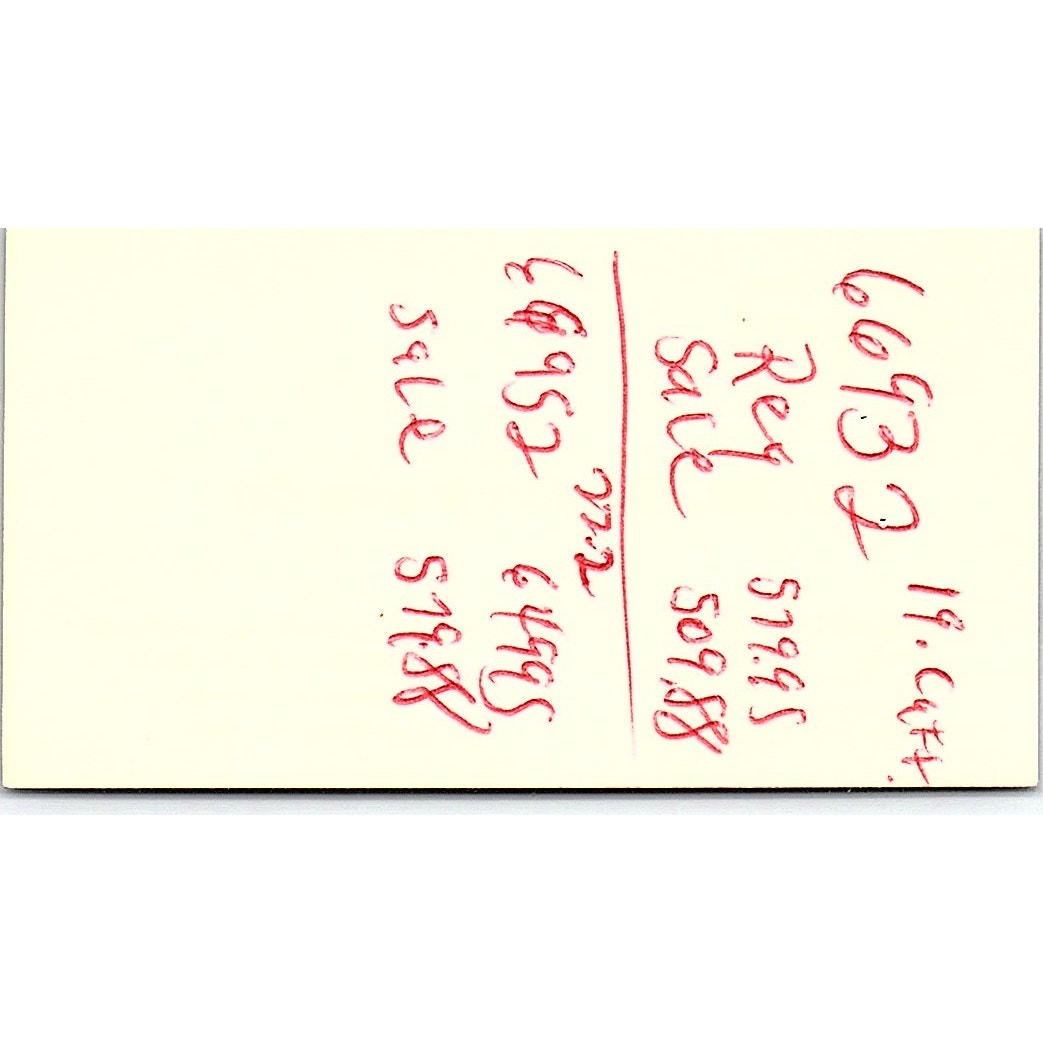 66932 19. cu ft.
Reg 579.95
Sale 509.88
22.2
66952 649.95
Sale 579.88